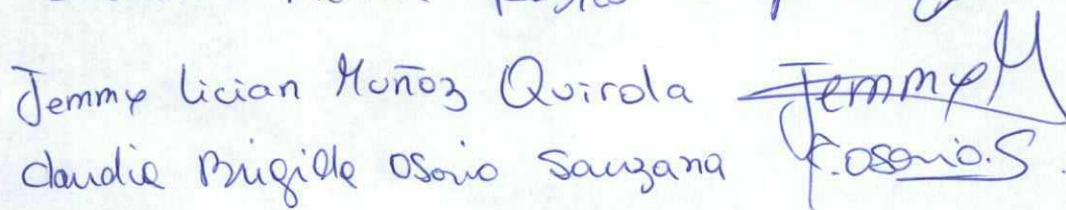 Jemmy Lician Muñoz Quirola JemmyM
Claudia Brigida Osorio Sanzana C.Osorio.S.